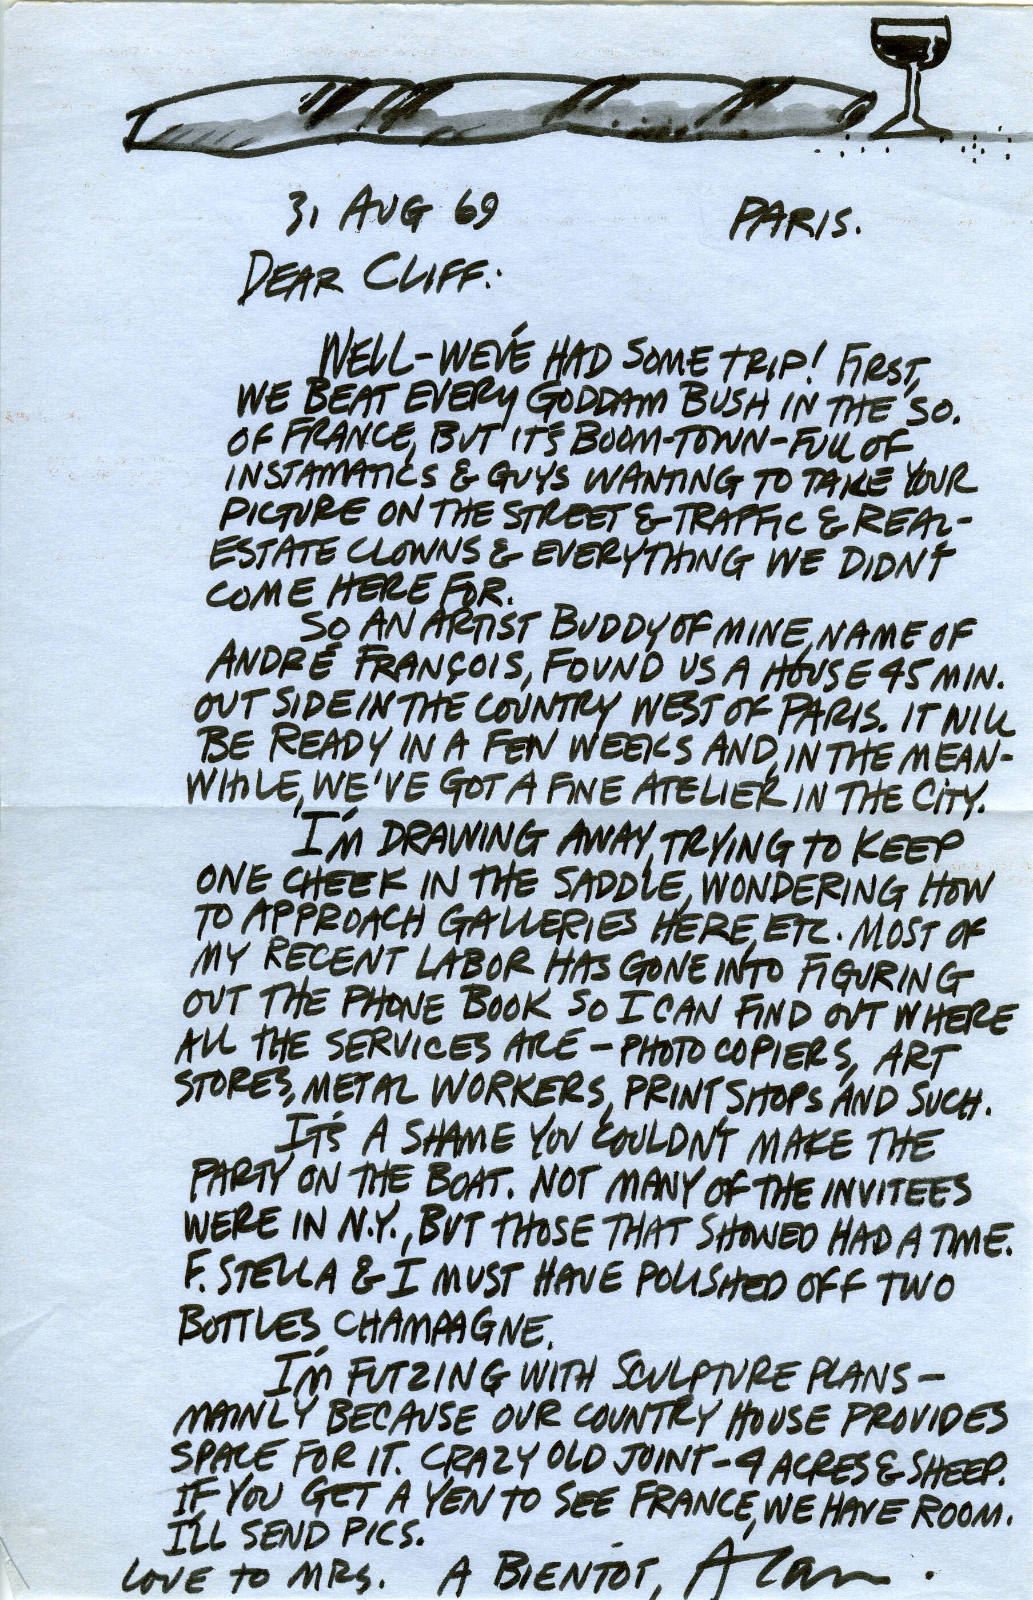 31 AUG 69 PARIS.
DEAR CLIFF:
WELL-WE'VE HAD SOME TRIP! FIRST,
WE BEAT EVERY GODDAM BUSH IN THE SO.
OF FRANCE, BUT IT'S BOOM-TOWN-FULL OF
INSTAMATICS & GUYS WANTING TO TAKE YOUR
PICTURE ON THE STREET & TRAFFIC & REAL-
ESTATE CLOWNS & EVERYTHING WE DIDN'T
COME HERE FOR.
SO AN ARTIST BUDDY OF MINE, NAME OF
ANDRÉ FRANÇOIS, FOUND US A HOUSE 45 MIN.
OUTSIDE IN THE COUNTRY WEST OF PARIS. IT WILL
BE READY IN A FEW WEEKS AND, IN THE MEAN-
WHILE, WE'VE GOT A FINE ATELIER IN THE CITY.
I'M DRAWING AWAY, TRYING TO KEEP
ONE CHEEK IN THE SADDLE, WONDERING HOW
TO APPROACH GALLERIES HERE, ETC. MOST OF
MY RECENT LABOR HAS GONE INTO FIGURING
OUT THE PHONE BOOK SO I CAN FIND OUT WHERE
ALL THE SERVICES ARE - PHOTO COPIERS, ART
STORES, METAL WORKERS, PRINT SHOPS AND SUCH.
IT'S A SHAME YOU COULDN'T MAKE THE
PARTY ON THE BOAT. NOT MANY OF THE INVITEES
WERE IN N.Y., BUT THOSE THAT SHOWED HAD A TIME.
F. STELLA & I MUST HAVE POLISHED OFF TWO
BOTTLES CHAMPAGNE.
I'M FUTZING WITH SCULPTURE PLANS -
MAINLY BECAUSE OUR COUNTRY HOUSE PROVIDES
SPACE FOR IT. CRAZY OLD JOINT - 4 ACRES & SHEEP.
IF YOU GET A YEN TO SEE FRANCE, WE HAVE ROOM.
I'LL SEND PICS.
LOVE TO MRS. A BIENTOT, Alan.